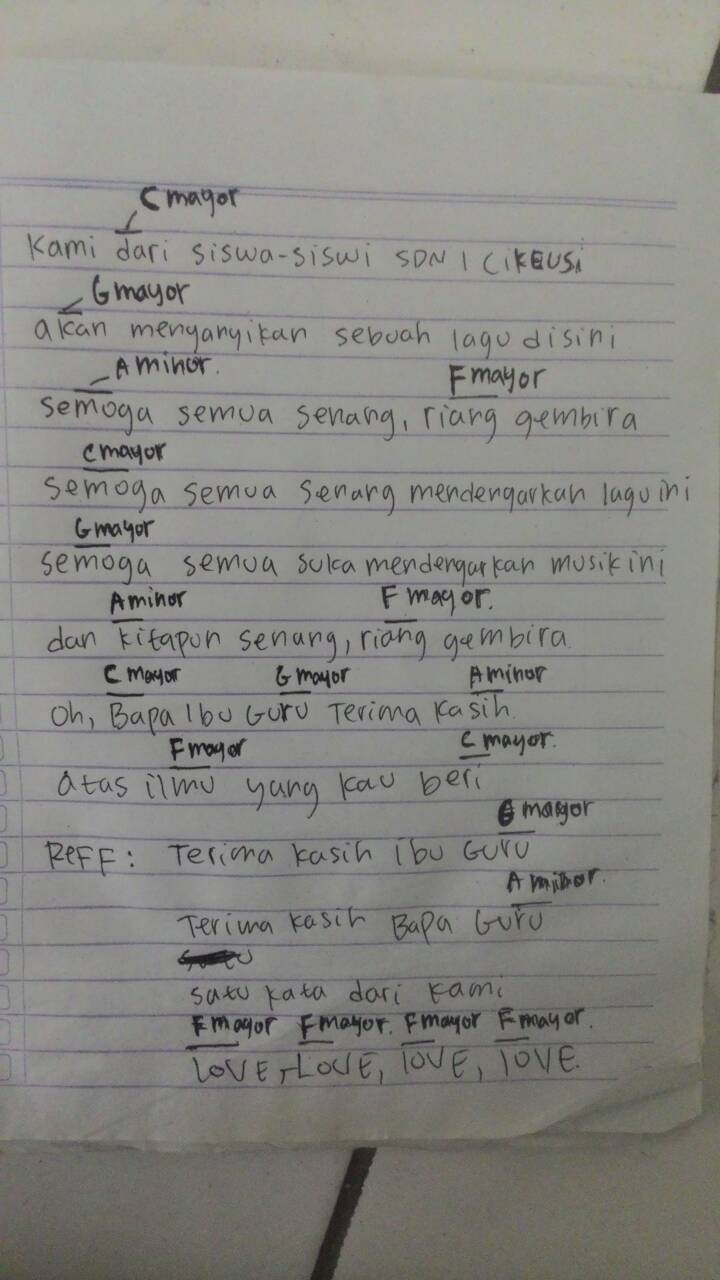 C mayor
Kami dari siswa-siswi SDN 1 CIKEUSI
G mayor
akan menyanyikan sebuah lagu disini
A minor. F mayor
semoga semua senang, riang gembira
C mayor
semoga semua senang mendengarkan lagu ini
G mayor
semoga semua suka mendengarkan musik ini
A minor F mayor.
dan kitapun senang, riang gembira
C mayor G mayor A minor
Oh, Bapa Ibu Guru Terima Kasih.
F mayor C mayor.
atas ilmu yang kau beri
G mayor
REFF : Terima kasih ibu Guru
A minor.
Terima kasih Bapa Guru
satu kata dari kami
F mayor F mayor. F mayor F mayor.
LOVE, LOVE, lOVE, lOVE.